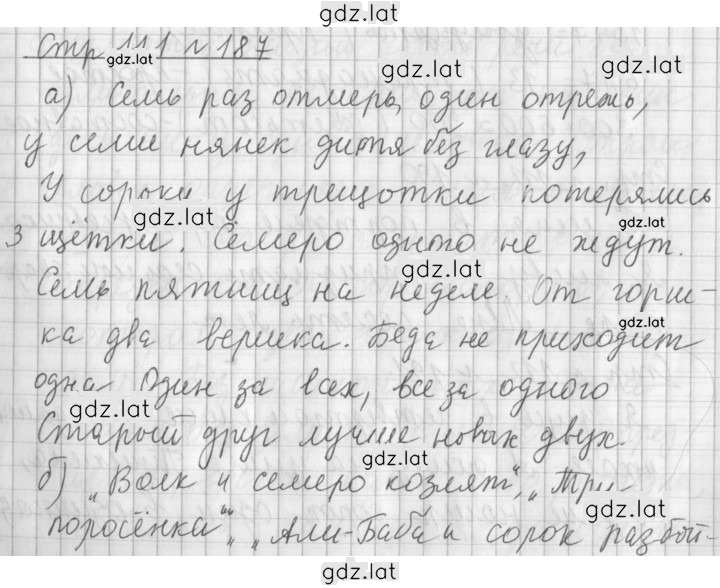 gdz.lat
Стр 111 № 187
gdz.lat
gdz.lat
gdz.lat
а) Семь раз отмерь, один отрежь,
у семи нянек дитя без глазу,
У сороки у трещотки потерялись
gdz.lat
gdz.lat
3 щётки. Семеро одного не ждут.
gdz.lat
Семь пятниц на неделе. От горш-
gdz.lat
ка два вершка. Беда не приходит
одна. Один за всех, все за одного
gdz.lat
Старый друг лучше новых двух.
gdz.lat
б) „Волк и семеро козлят“, „Три
gdz.lat
поросёнка“, „Али-Баба и сорок разбой-
gdz.lat